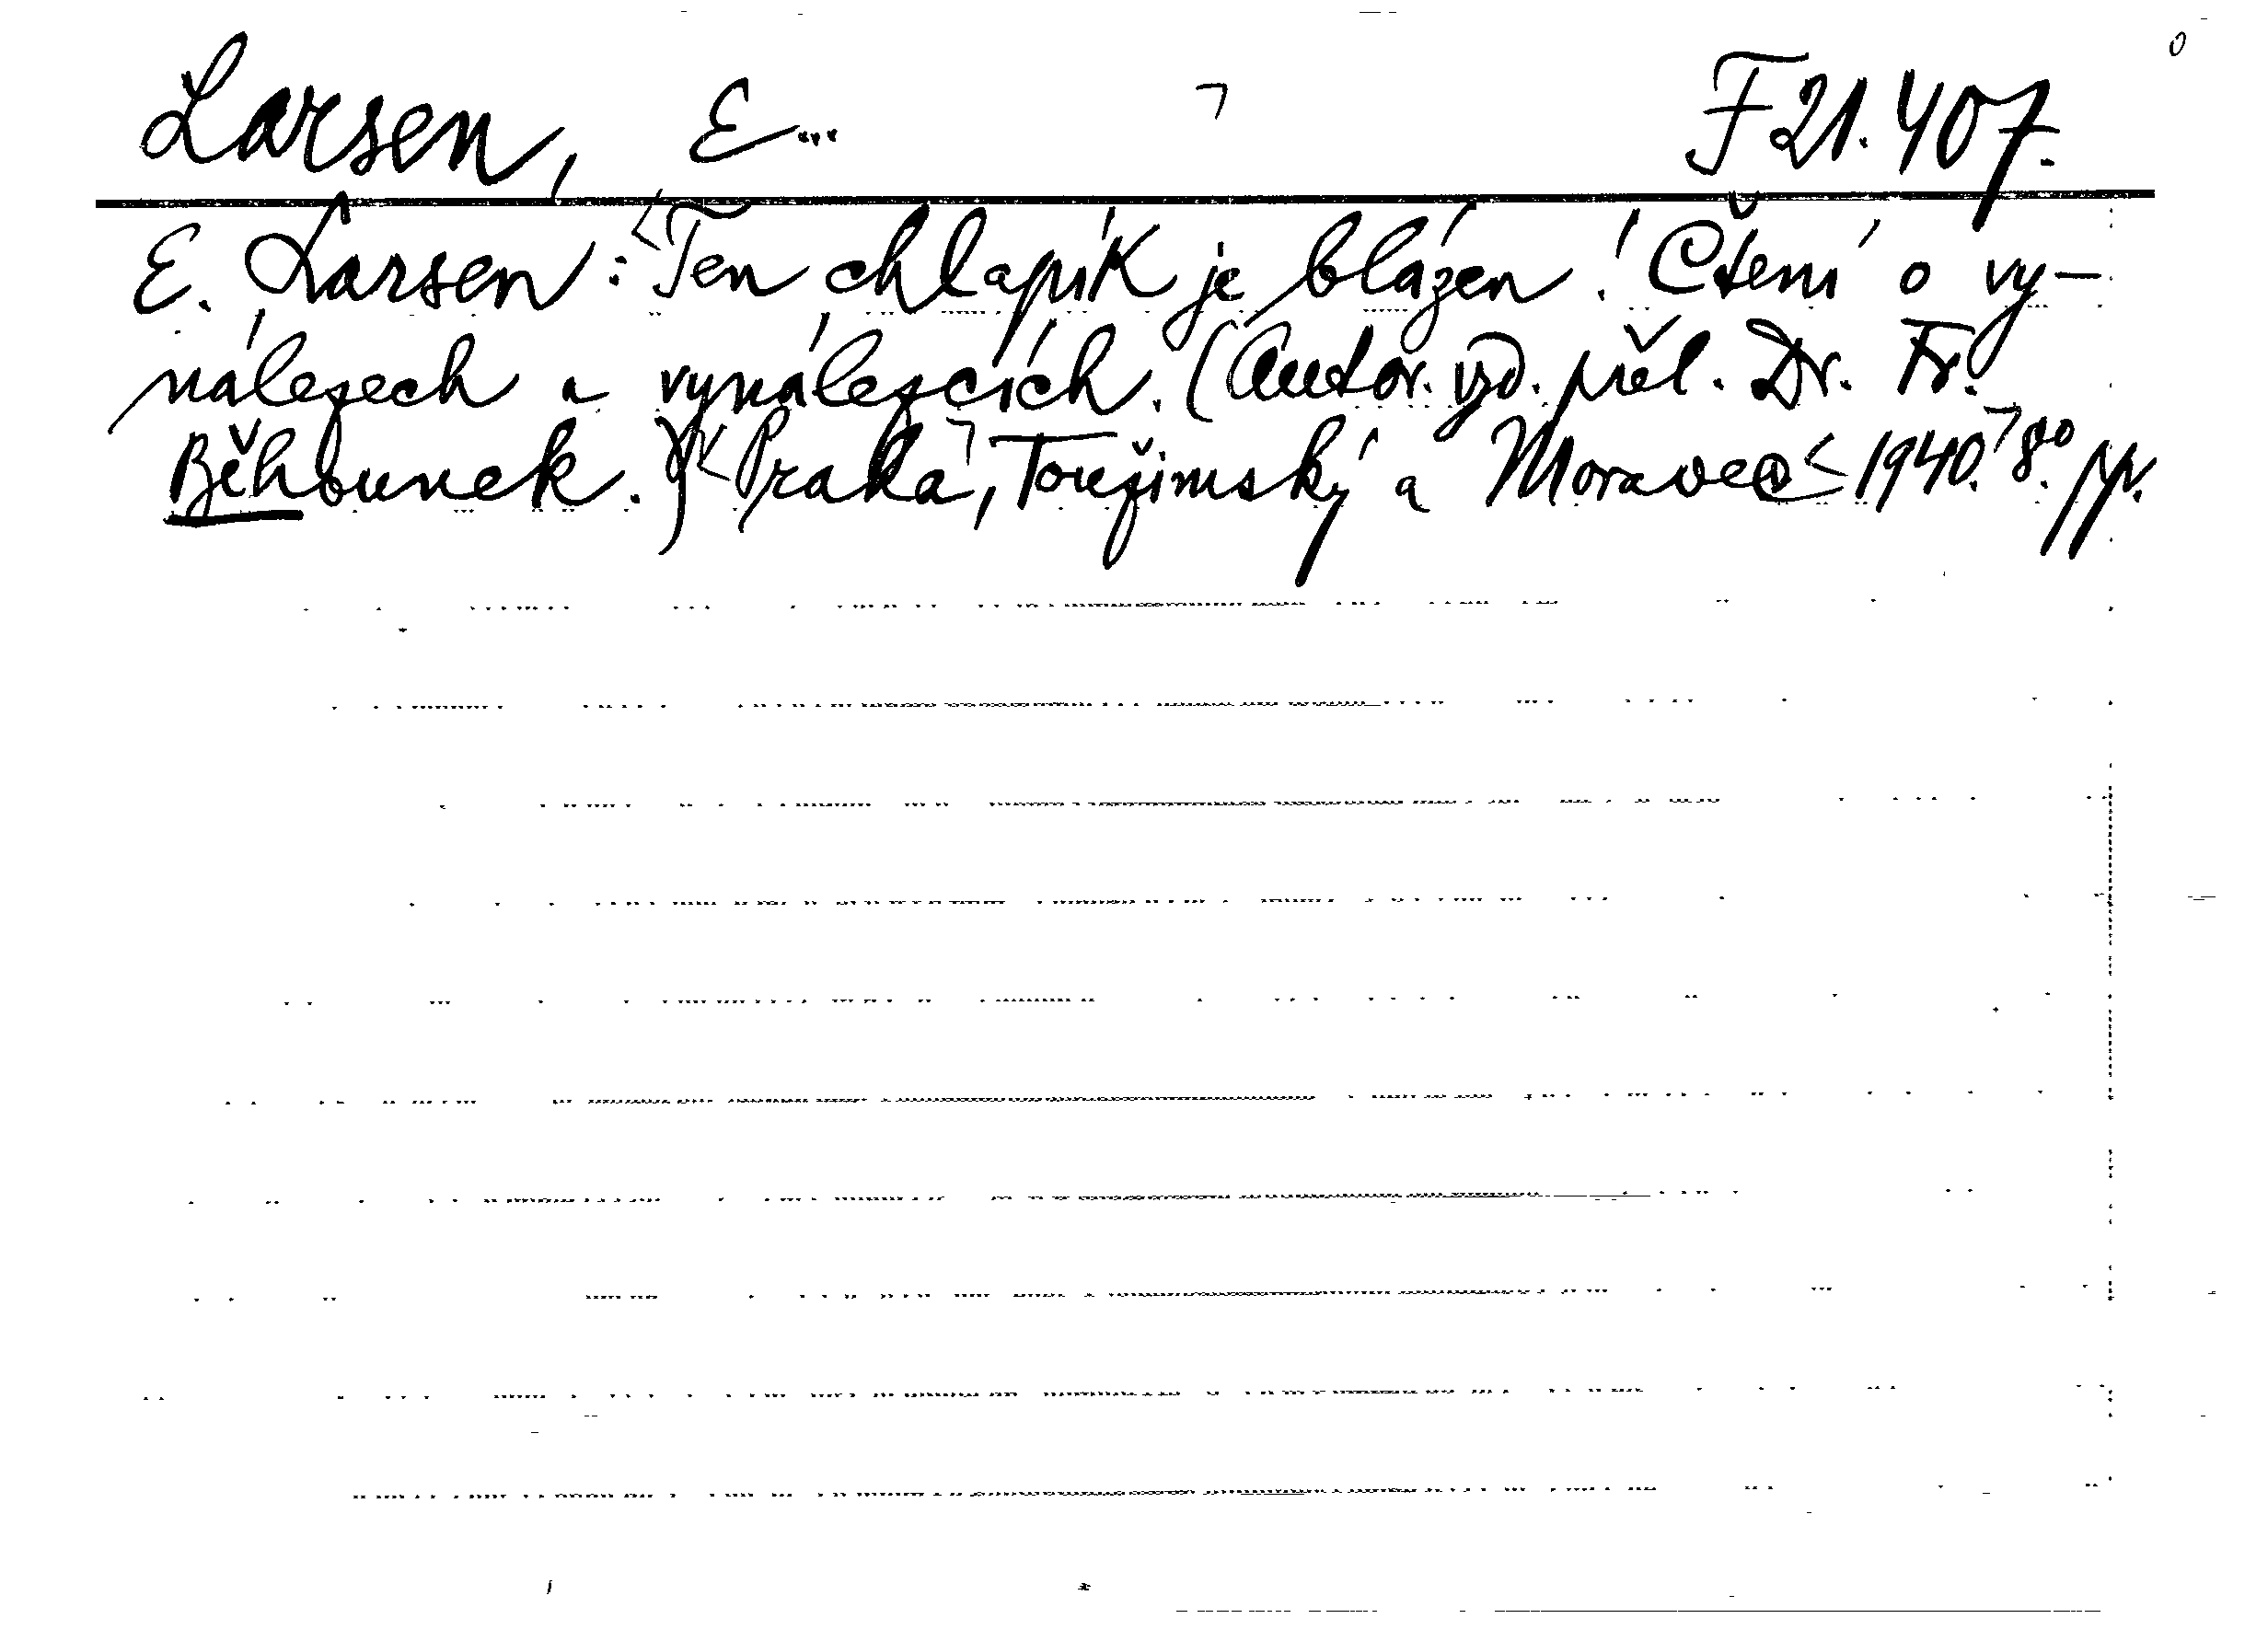 Larsen, E... F 21.407.
E. Larsen: Ten chlapík je blázen! Čtení o vy-
nálezech a vynálezcích. (Autor. vyd. přel. Dr. Fr.
Běhounek.) Praha, Toužimský a Moravec 1940. 8°